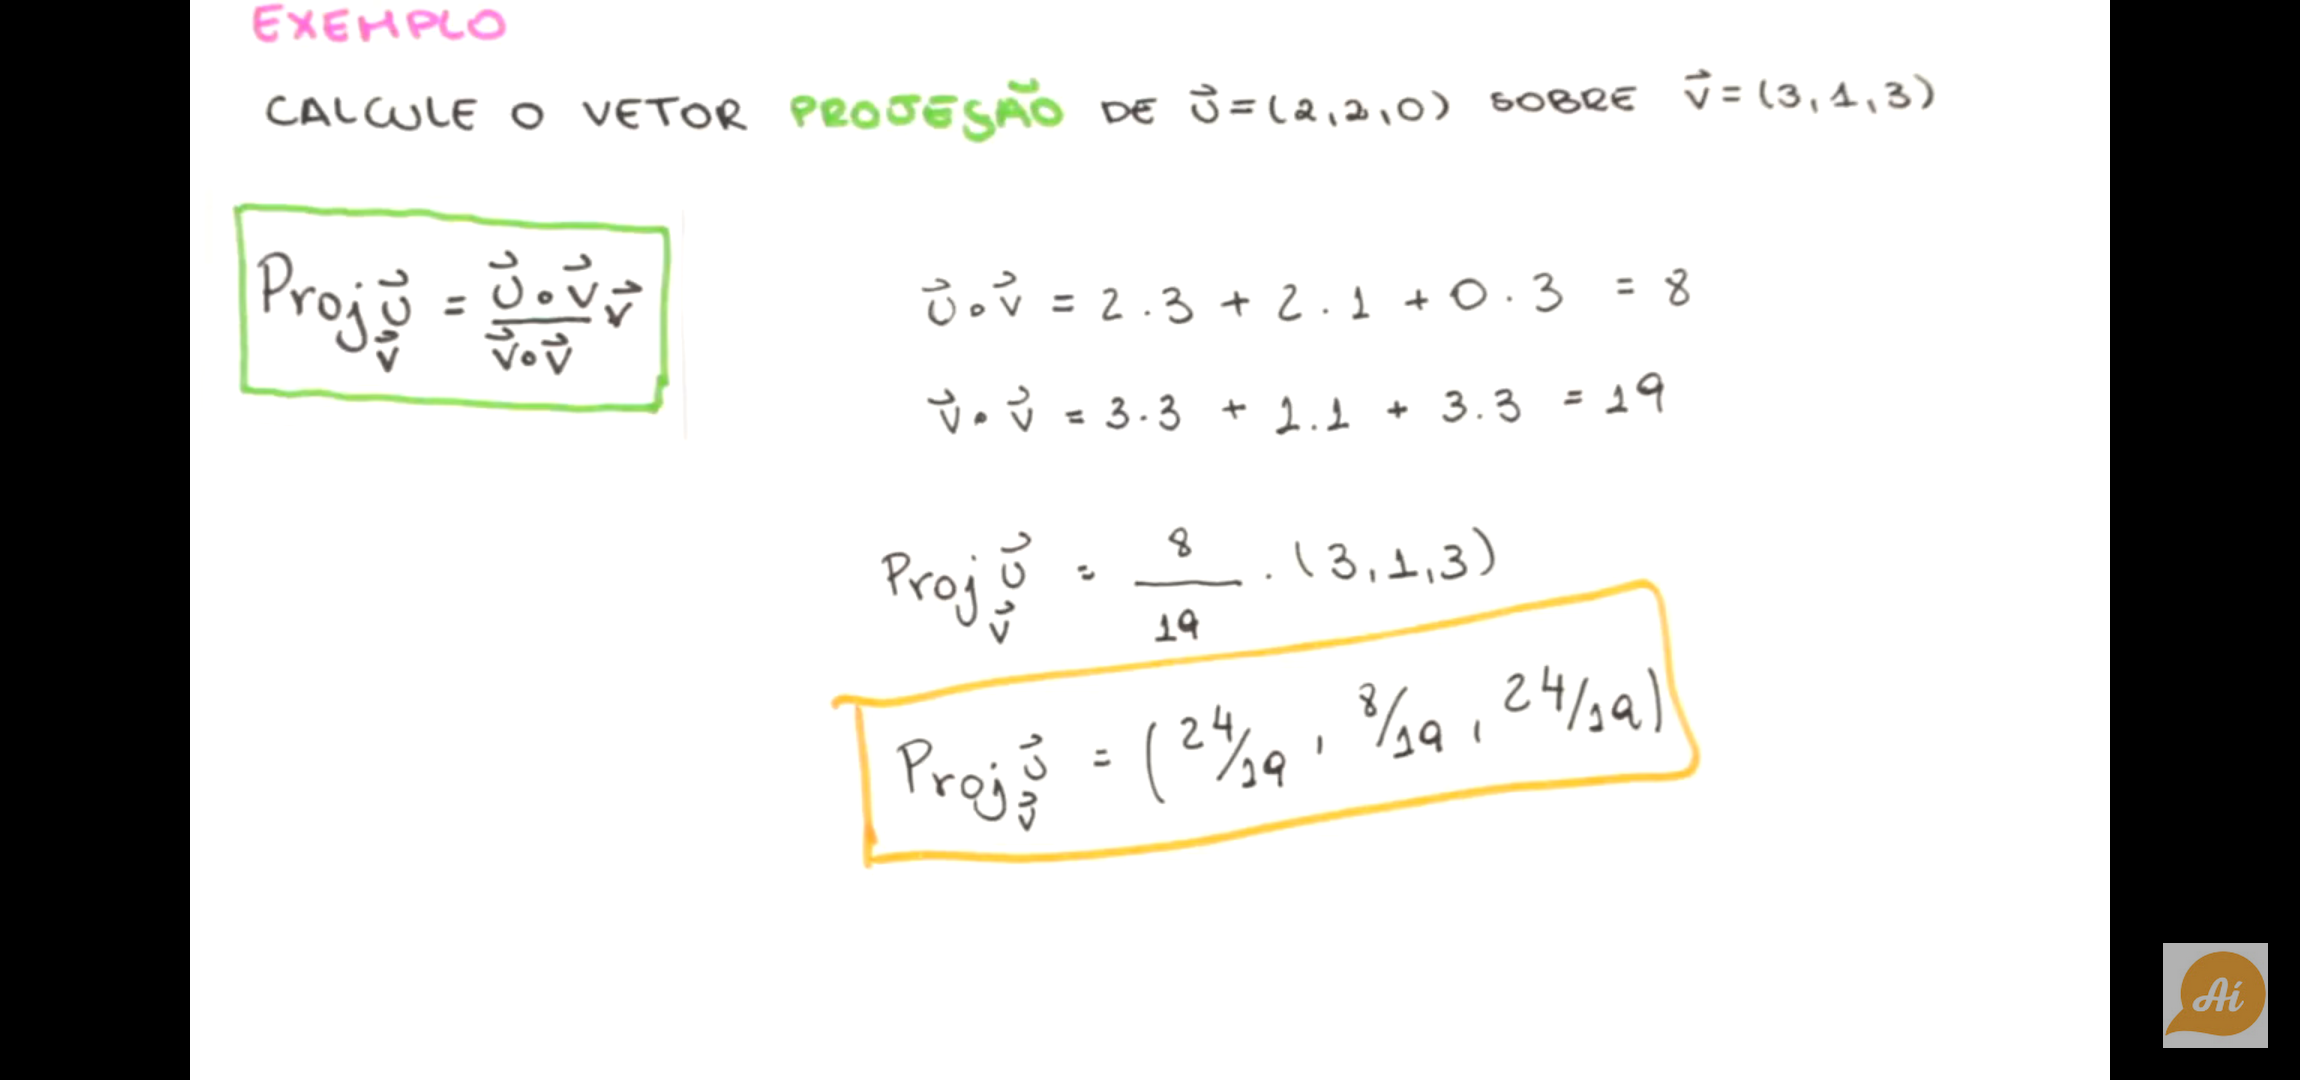 EXEMPLO
CALCULE O VETOR PROJEÇÃO DE u⃗ = (2,2,0) SOBRE v⃗ = (3,1,3)
Proj_v⃗ u⃗ = (u⃗∘v⃗)/(v⃗∘v⃗) v⃗
u⃗∘v⃗ = 2.3 + 2.1 + 0.3 = 8
v⃗∘v⃗ = 3.3 + 1.1 + 3.3 = 19
Proj_v⃗ u⃗ = 8/19 . (3,1,3)
Proj_v⃗ u⃗ = (24/19, 8/19, 24/19)
Aí